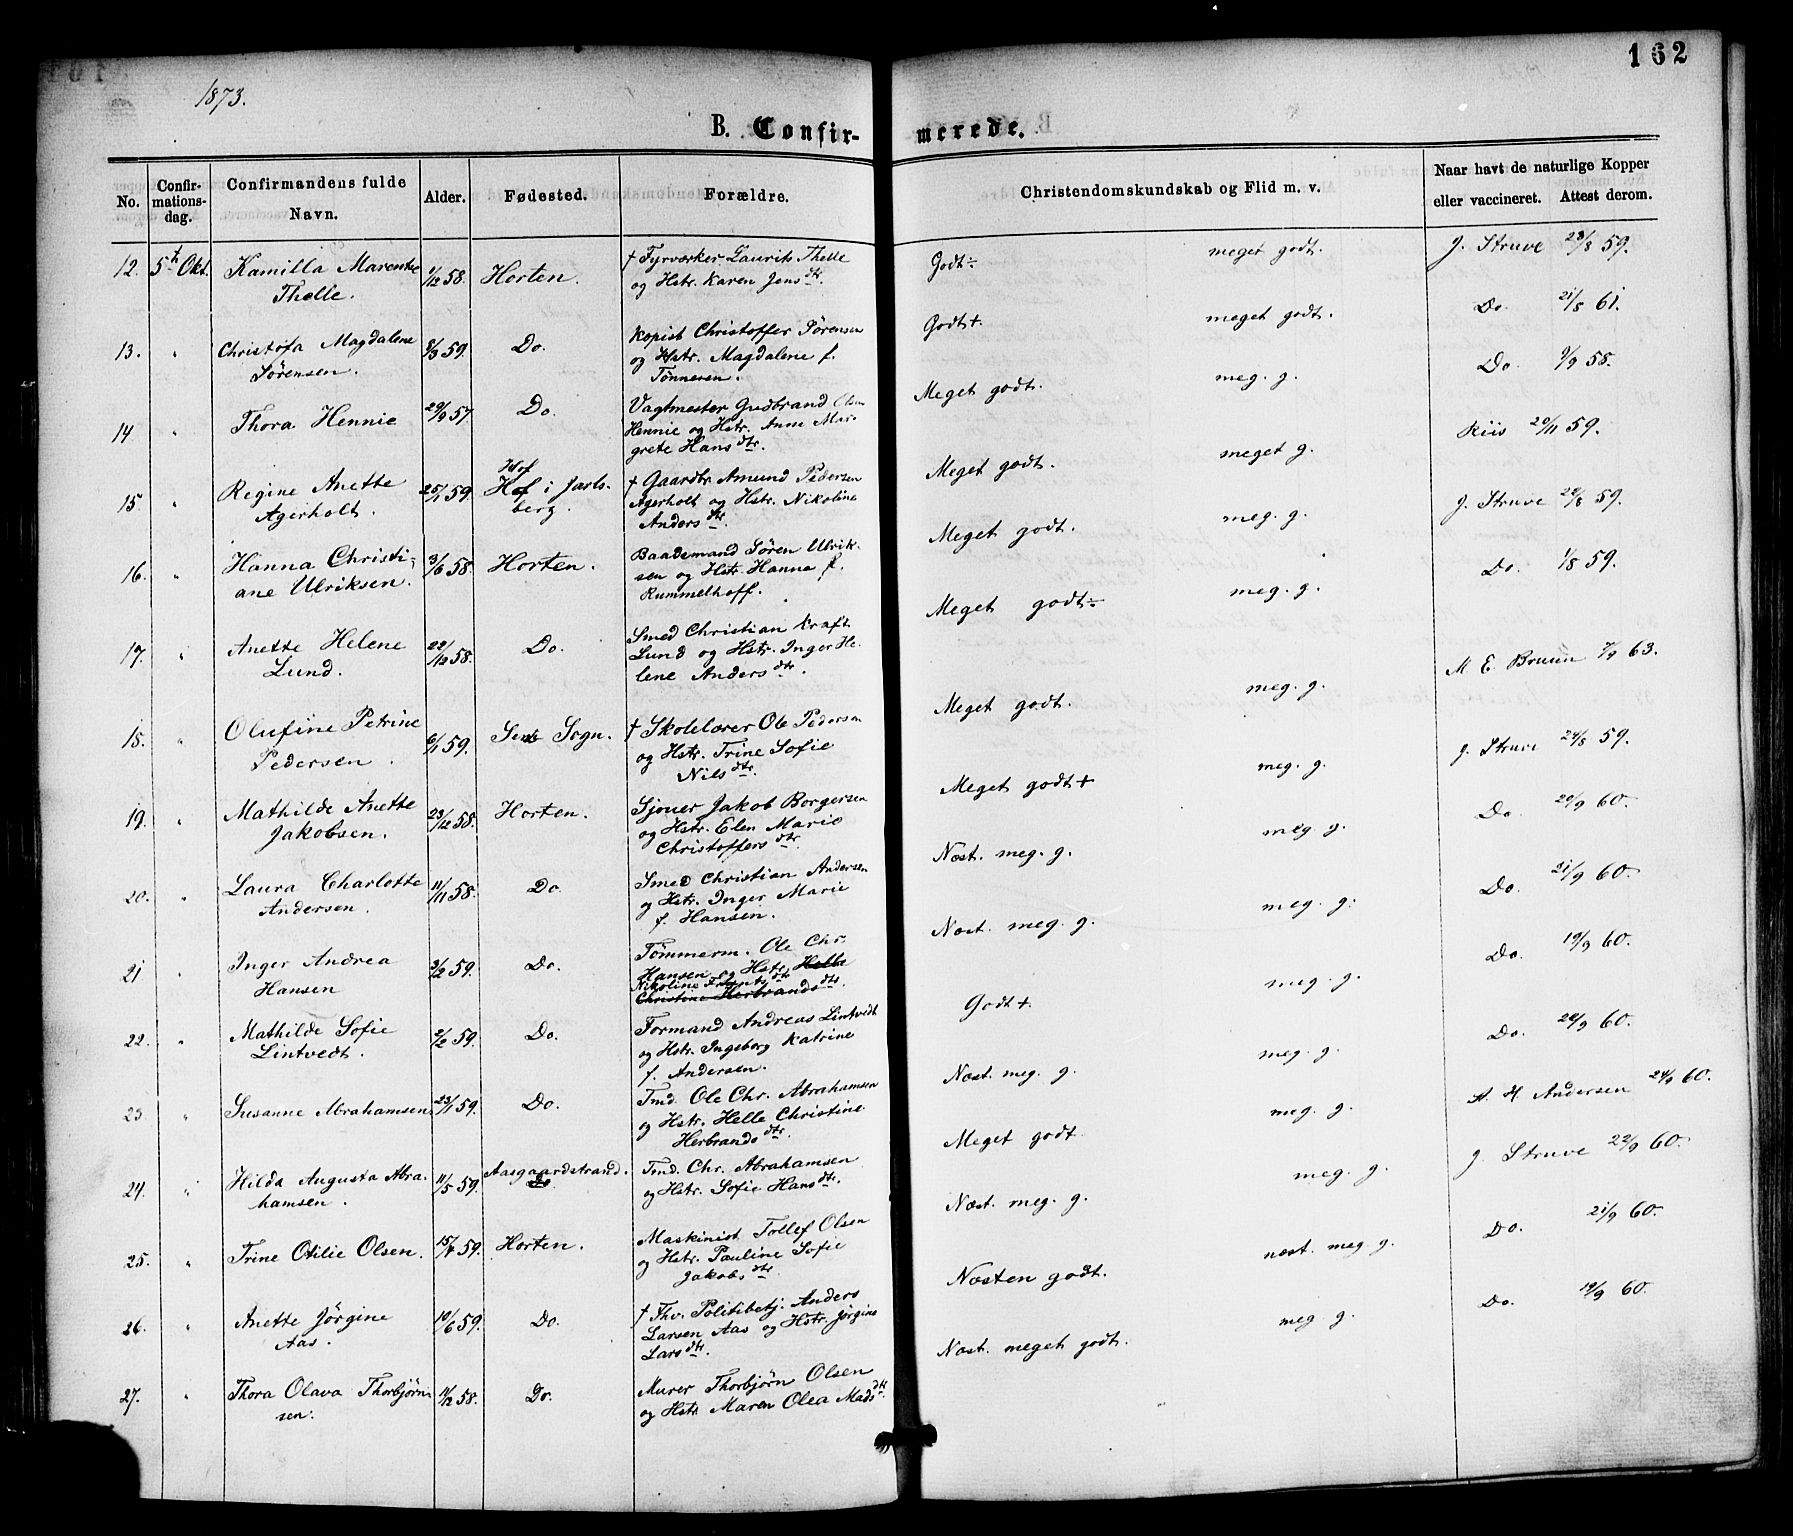 162
1873.
B. Confir- merede.
No.
Confir-
mations-
dag.
Confirmandens fulde
Navn.
Alder.
Fødested.
Forældre.
Christendomskundskab og Flid m. v.
Naar havt de naturlige Kopper
eller vaccineret. Attest derom.
12. 5th Okt. Kamilla Marentse 1/12 58. Horten. † Fyrværker Laurits Thelle Godt÷ meget godt. J. Struve 23/8 59.
Thelle. og Hstr. Karen Jensdtr.
13. " Christofa Magdalene 8/9 59. Do. Kopist Christoffer Sörensen Godt+ meget godt. Do. 21/8 61.
Sörensen. og Hstr. Magdalene f.
Tönnesen.
14 " Thora Hennie 29/9 57. Do. Vagtmester Gudbrand Olsen Meget godt. meg. g. Do. 9/9 58.
Hennie og Hstr. Anne Mar-
grete Hansdtr.
15. " Regine Anette 25/1 59. Hof i Jarls- † Gaardbr. Amund Pedersen Meget godt. meget g. Kiis 20/11 59.
Agerholt. berg. Agerholt og Hstr. Nikoline
Andersdtr.
16. " Hanna Christi- 3/6 58. Horten. Baademand Sören Ulrik- Meget godt. meg. g. J. Struve 22/8 59.
ane Ulriksen. sen og Hstr. Hanna f.
Rummelhoff.
17. " Anette Helene 22/12 58. Do. Smed Christian Kraft Meget godt÷ meg. g. Do. 1/8 59.
Lund. Lund og Hstr. Inger He-
lene Andersdtr.
18. " Olufine Petrine 6/1 59. Sems Sogn. † Skolelærer Ole Pedersen Meget godt. meg. g. M E. Bruun 7/9 63.
Pedersen. og Hstr. Trine Sofie
Nilsdtr.
19. " Mathilde Anette 23/12 58. Horten. Sjouer Jakob Borgersen Meget godt+ meg. g. J. Struve 24/8 59.
Jakobsen. og Hstr. Elen Marie
Christoffersdtr.
20. " Laura Charlotte 11/11 58. Do. Smed Christian Andersen Næst. meg. g. meg. g. Do. 20/9 60.
Andersen. og Hstr. Inger Marie
f. Hansen.
21 " Inger Andrea 2/2 59. Do. Tömmerm. Ole Chr. Næst. meg. g. meg. g. Do. 21/9 60.
Hansen Hansen og Hstr. Helle
Nikoline Frantsdtr
Christine Herbrandsdtr.
22. " Mathilde Sofie 2/2 59. Do. Formand Andreas Lintvedt Godt+ meg. g. Do. 19/9 60.
Lintvedt. og Hstr. Ingeborg Katrine
f. Andersen.
23 " Susanne Abrahamsen 23/1 59. Do. Tmd. Ole Chr. Abrahamsen Næst. meg. g. meg. g. Do. 22/9 60.
og Hstr. Helle Christine
Herbrandsdtr.
24. " Hilda Augusta Abra- 11/5 59. Aasgaardstrand. Tmd. Chr. Abrahamsen Meget godt meg. g. A. H. Andersen 24/9 60.
hamsen. Do og Hstr. Sofie Hansdtr.
25. " Trine Otilie Olsen. 15/7 59. Horten. Maskinist Tollef Olsen Næst. meg. g. meg. g. J. Struve 22/9 60.
og Hstr. Pauline Sofie
Jakobsdtr.
26. " Anette Jörgine 10/6 59. Do. † Fhv. Politibetj. Anders Næsten godt. næst. meg. g. Do. 21/9 60.
Aas. Larsen Aas og Hstr. Jörgine
Larsdtr.
27. " Thora Olava Thorbjörn- 11/12 58. Do. Murer Thorbjörn Olsen Næst. meget godt. meg. g. Do. 19/9 60.
sen. og Hstr. Maren Olea Madsdtr.